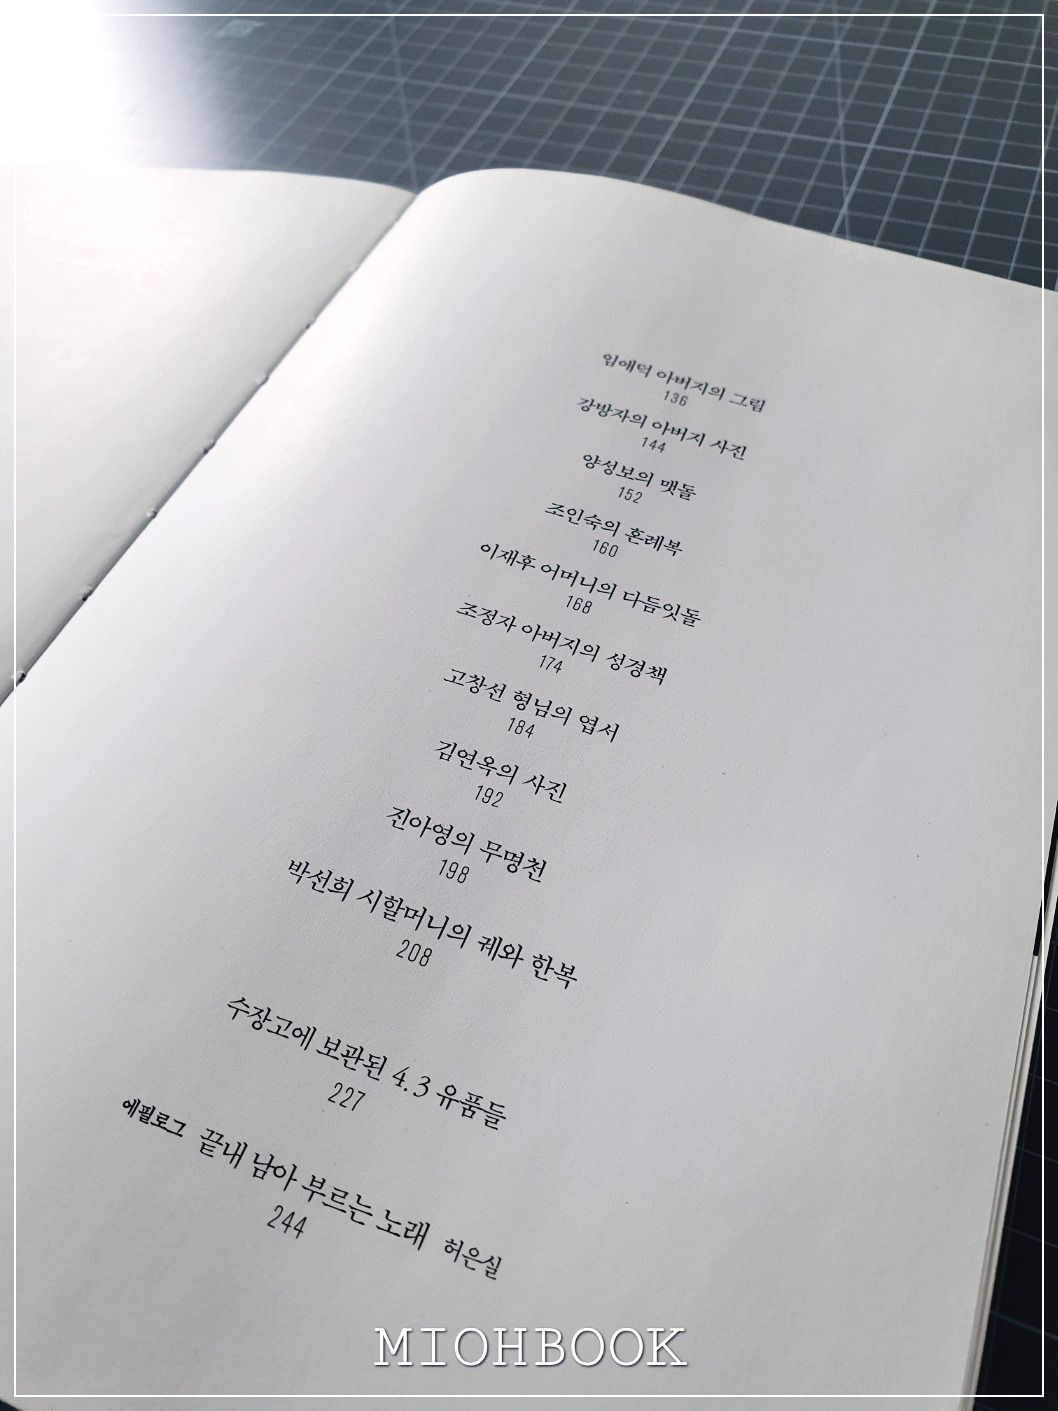 임애덕 아버지의 그림
136
강방자의 아버지 사진
144
양성보의 맷돌
152
조인숙의 혼례복
160
이재후 어머니의 다듬잇돌
168
조정자 아버지의 성경책
174
고창선 형님의 엽서
184
김연옥의 사진
192
진아영의 무명천
198
박선희 시할머니의 궤와 한복
208
수장고에 보관된 4.3 유품들
227
에필로그 끝내 남아 부르는 노래 허은실
244
MIOHBOOK